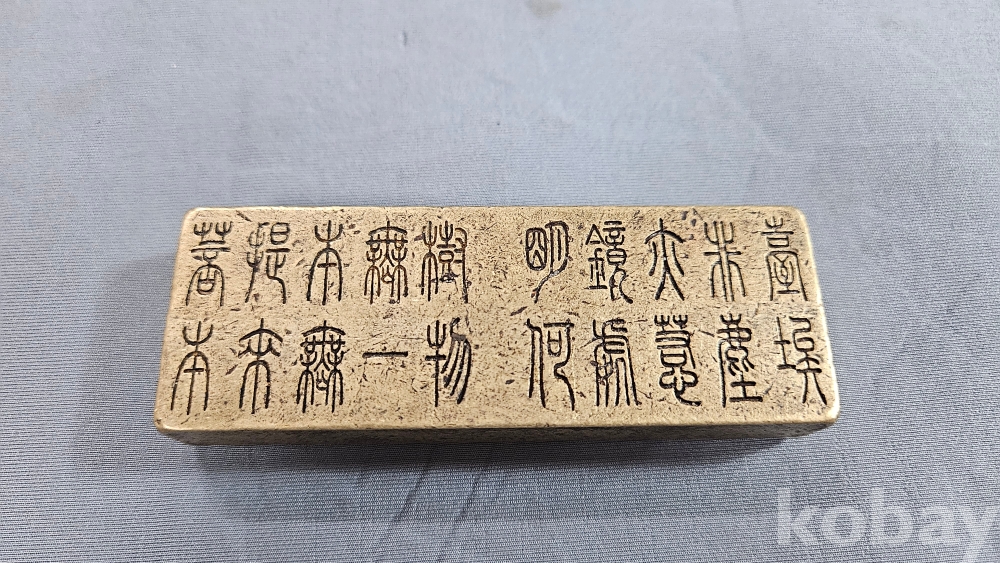 菩提本無樹 明鏡亦未臺
本來無一物 何處惹塵埃
kobay